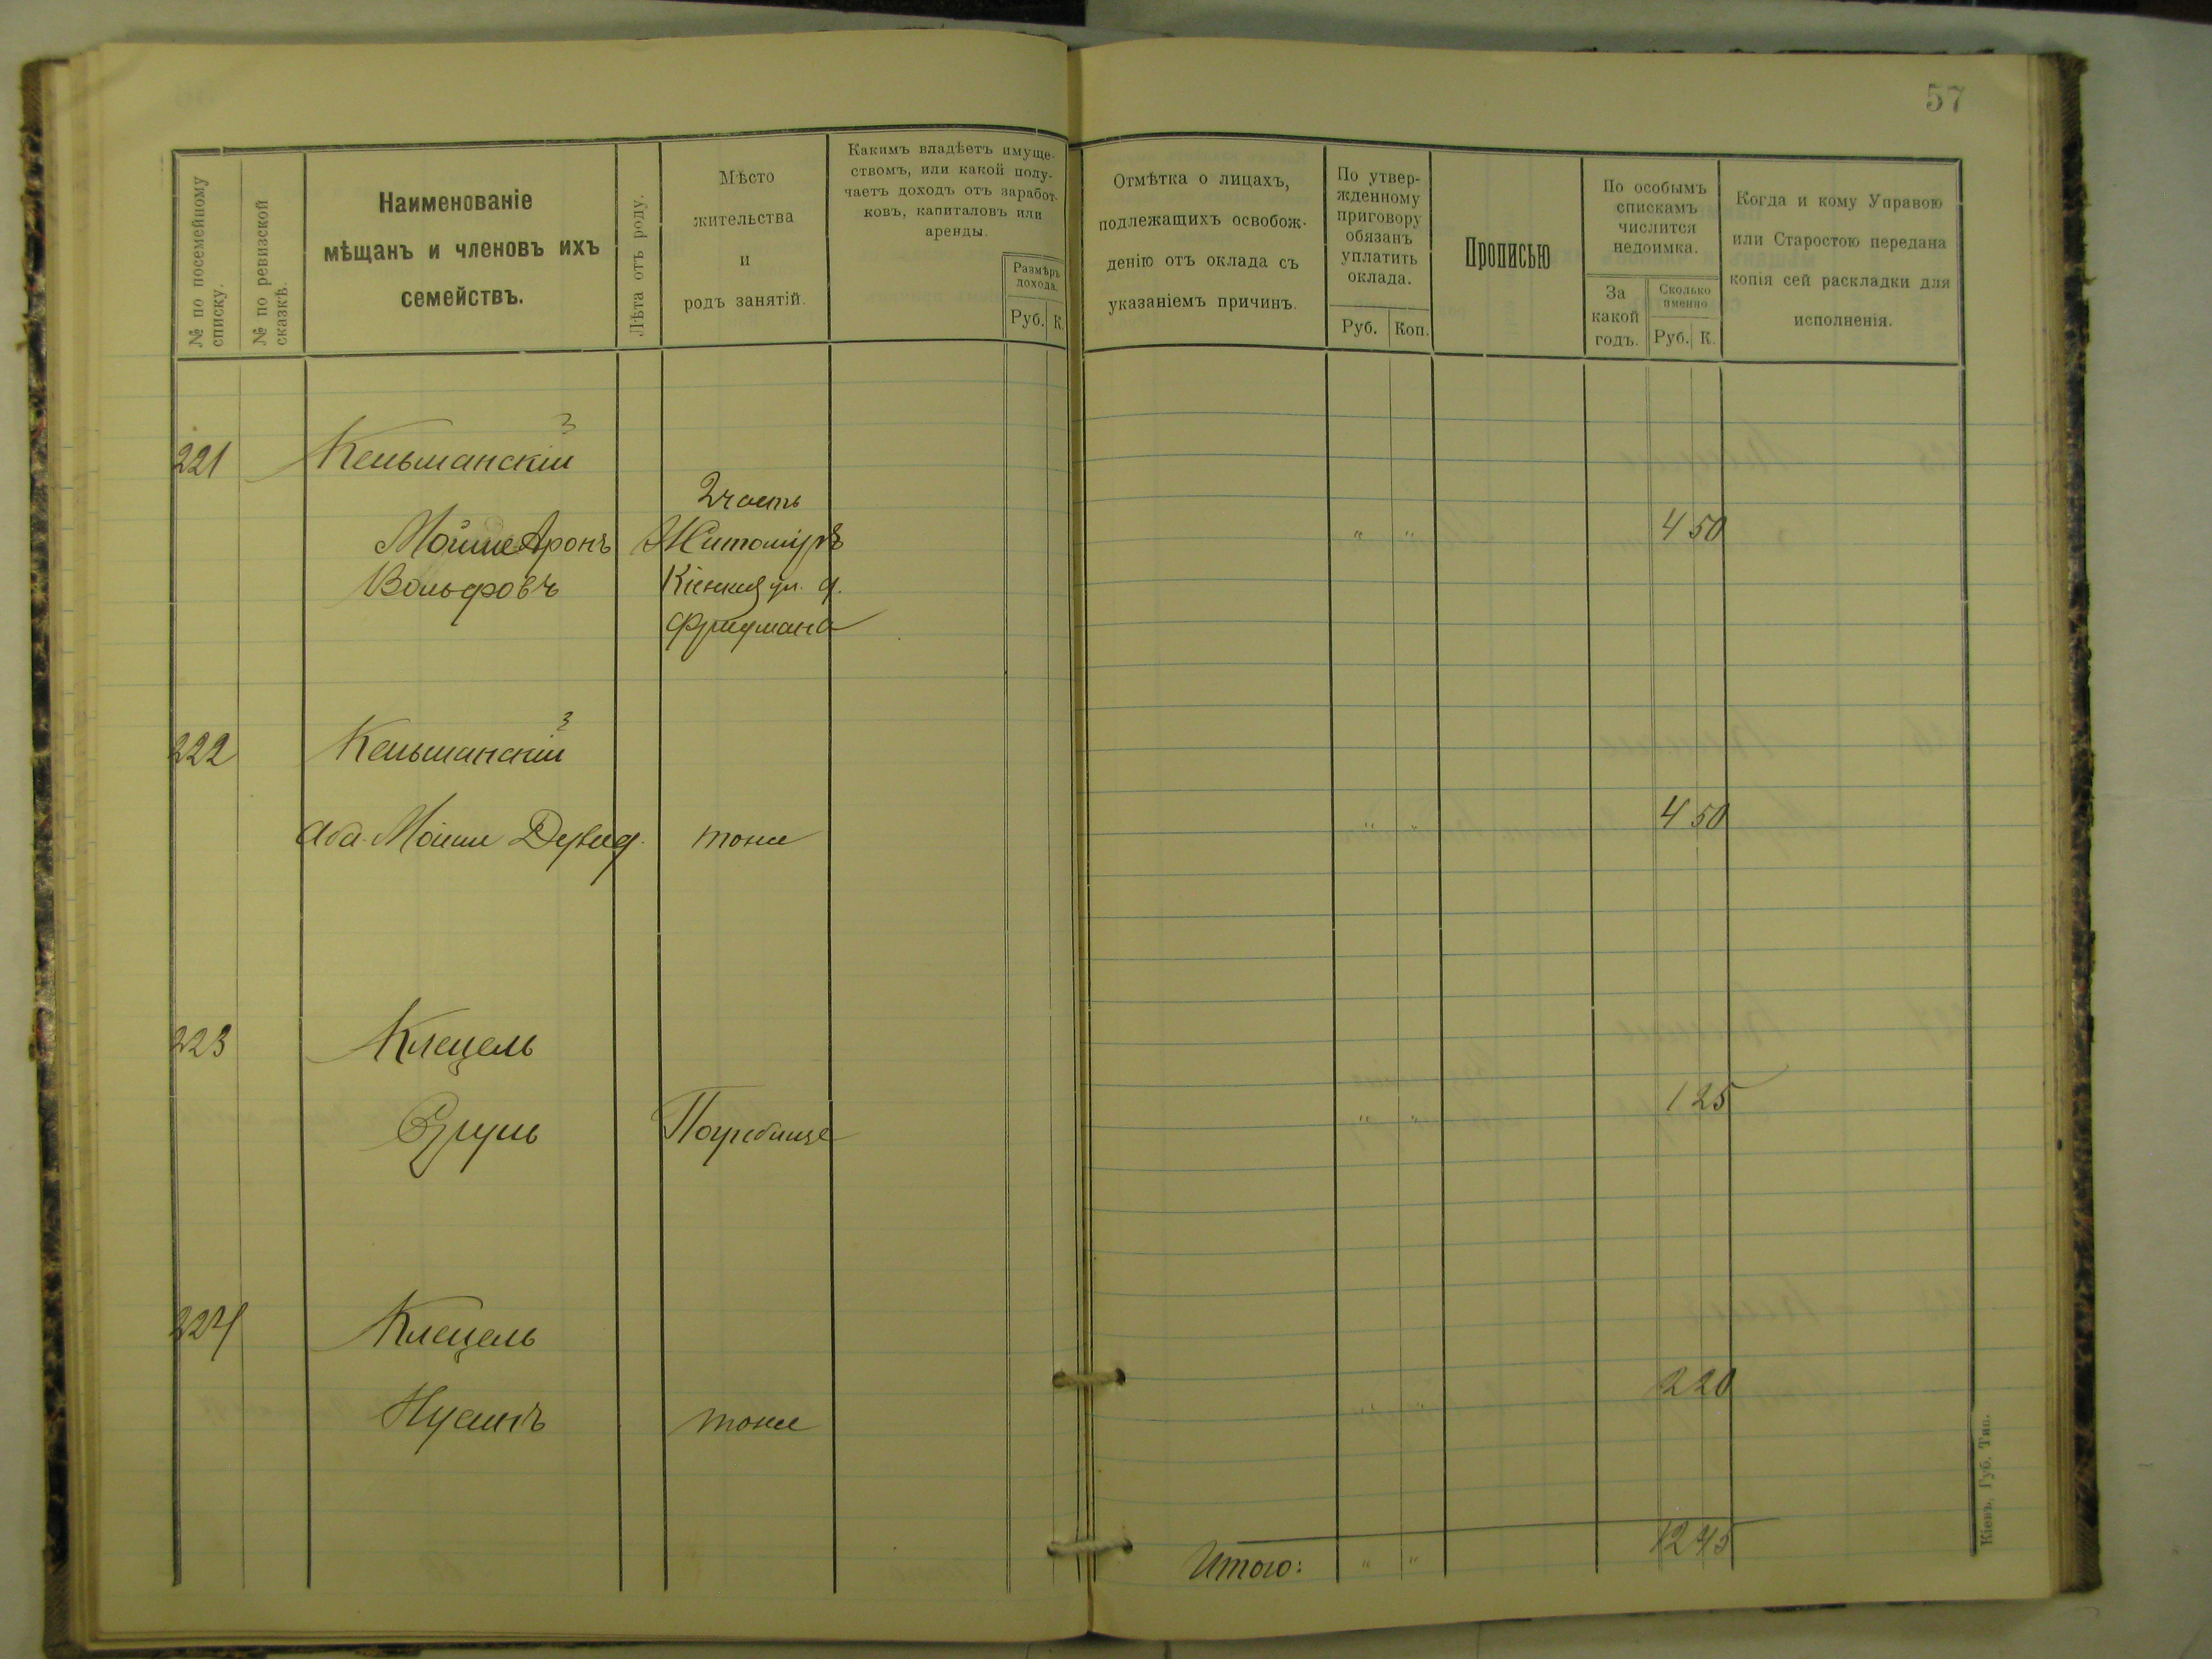 57
№ по посемейному списку.
№ по ревизской сказкѣ.
Наименованіе
мѣщанъ и членовъ ихъ
семействъ.
Лѣта отъ роду.
Мѣсто
жительства
и
родъ занятій.
Какимъ владѣетъ имуще-
ствомъ, или какой полу-
чаетъ доходъ отъ заработ-
ковъ, капиталовъ или
аренды.
Размѣръ
дохода.
Руб. К.
Отмѣтка о лицахъ,
подлежащихъ освобож-
денію отъ оклада съ
указаніемъ причинъ.
По утвер-
жденному
приговору
обязанъ
уплатить
оклада.
Руб. Коп.
Прописью
По особымъ
спискамъ
числится
недоимка.
За
какой
годъ.
Сколько
именно
Руб. К.
Когда и кому Управою
или Старостою передана
копія сей раскладки для
исполненія.
3
221 Кельманскій
2 часть
Мойше Аронъ Житоміръ " " 4 50
Вольфовъ ул. д.
Фридмана
3
222 Кельманскій
Аба-Мойше тоже " " 4 50
223 Клецель
Сруль Погребище " " 1 25
224 Клецель
Нусинъ тоже " " 2 20
Итого: " " 12 45
Кіевъ, Губ. Тип.